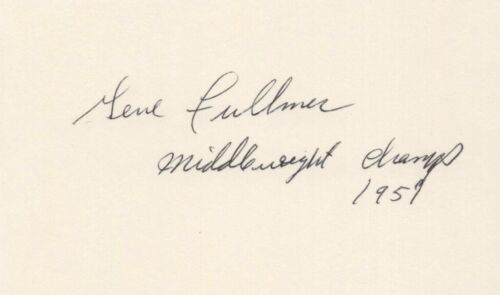 Gene Fullmer
Middleweight Champ
1957